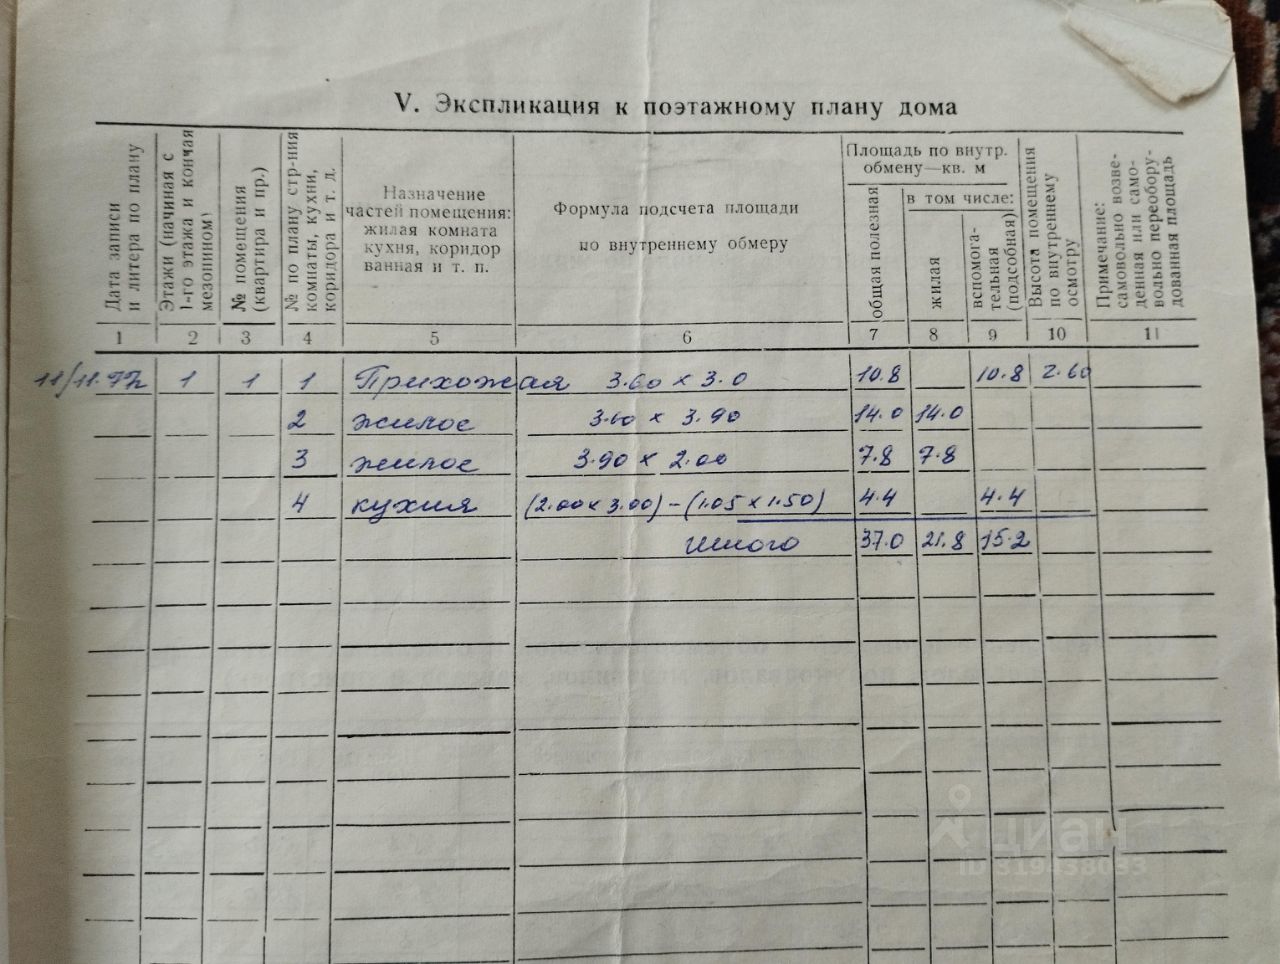 V. Экспликация к поэтажному плану дома
Дата записи и литера по плану
Этажи (начиная с 1-го этажа и кончая мезонином)
№ помещения (квартира и пр.)
№ по плану стр-ния комнаты, кухни, коридора и т. д.
Назначение
частей помещения:
жилая комната
кухня, коридор
ванная и т. п.
Формула подсчета площади
по внутреннему обмеру
Площадь по внутр.
обмену—кв. м
общая полезная
в том числе:
жилая
вспомога-
тельная
(подсобная)
Высота помещения по внутреннему осмотру
Примечание:
самовольно возве-
денная или само-
вольно переобору-
дованная площадь
1 2 3 4 5 6 7 8 9 10 11
11/11.77г 1 1 1 Прихожая 3.60 x 3.0 10.8 10.8 2.60
2 жилое 3.60 x 3.90 14.0 14.0
3 жилое 3.90 x 2.00 7.8 7.8
4 кухня (2.00 x 3.00) - (1.05 x 1.50) 4.4 4.4
Итого 37.0 21.8 15.2
циан